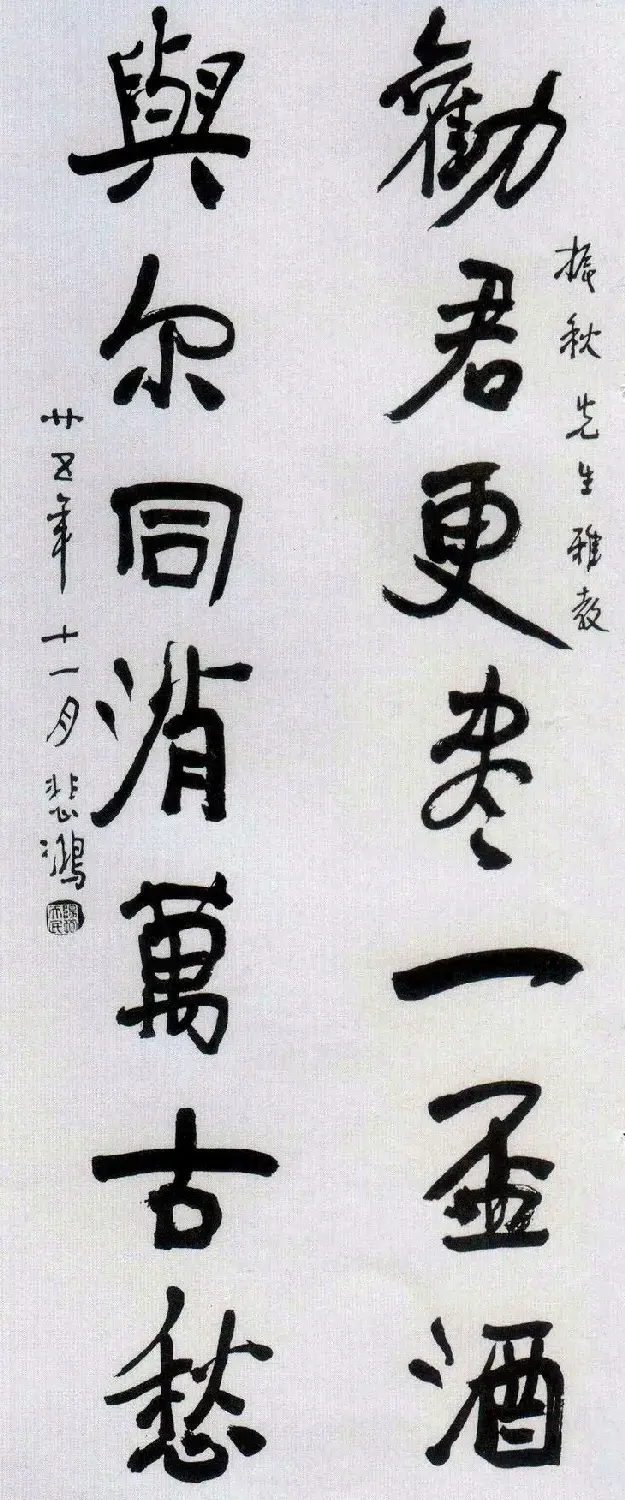 振秋先生雅教
勸君更盡一盃酒
與尔同消萬古愁
卅五年十一月悲鴻